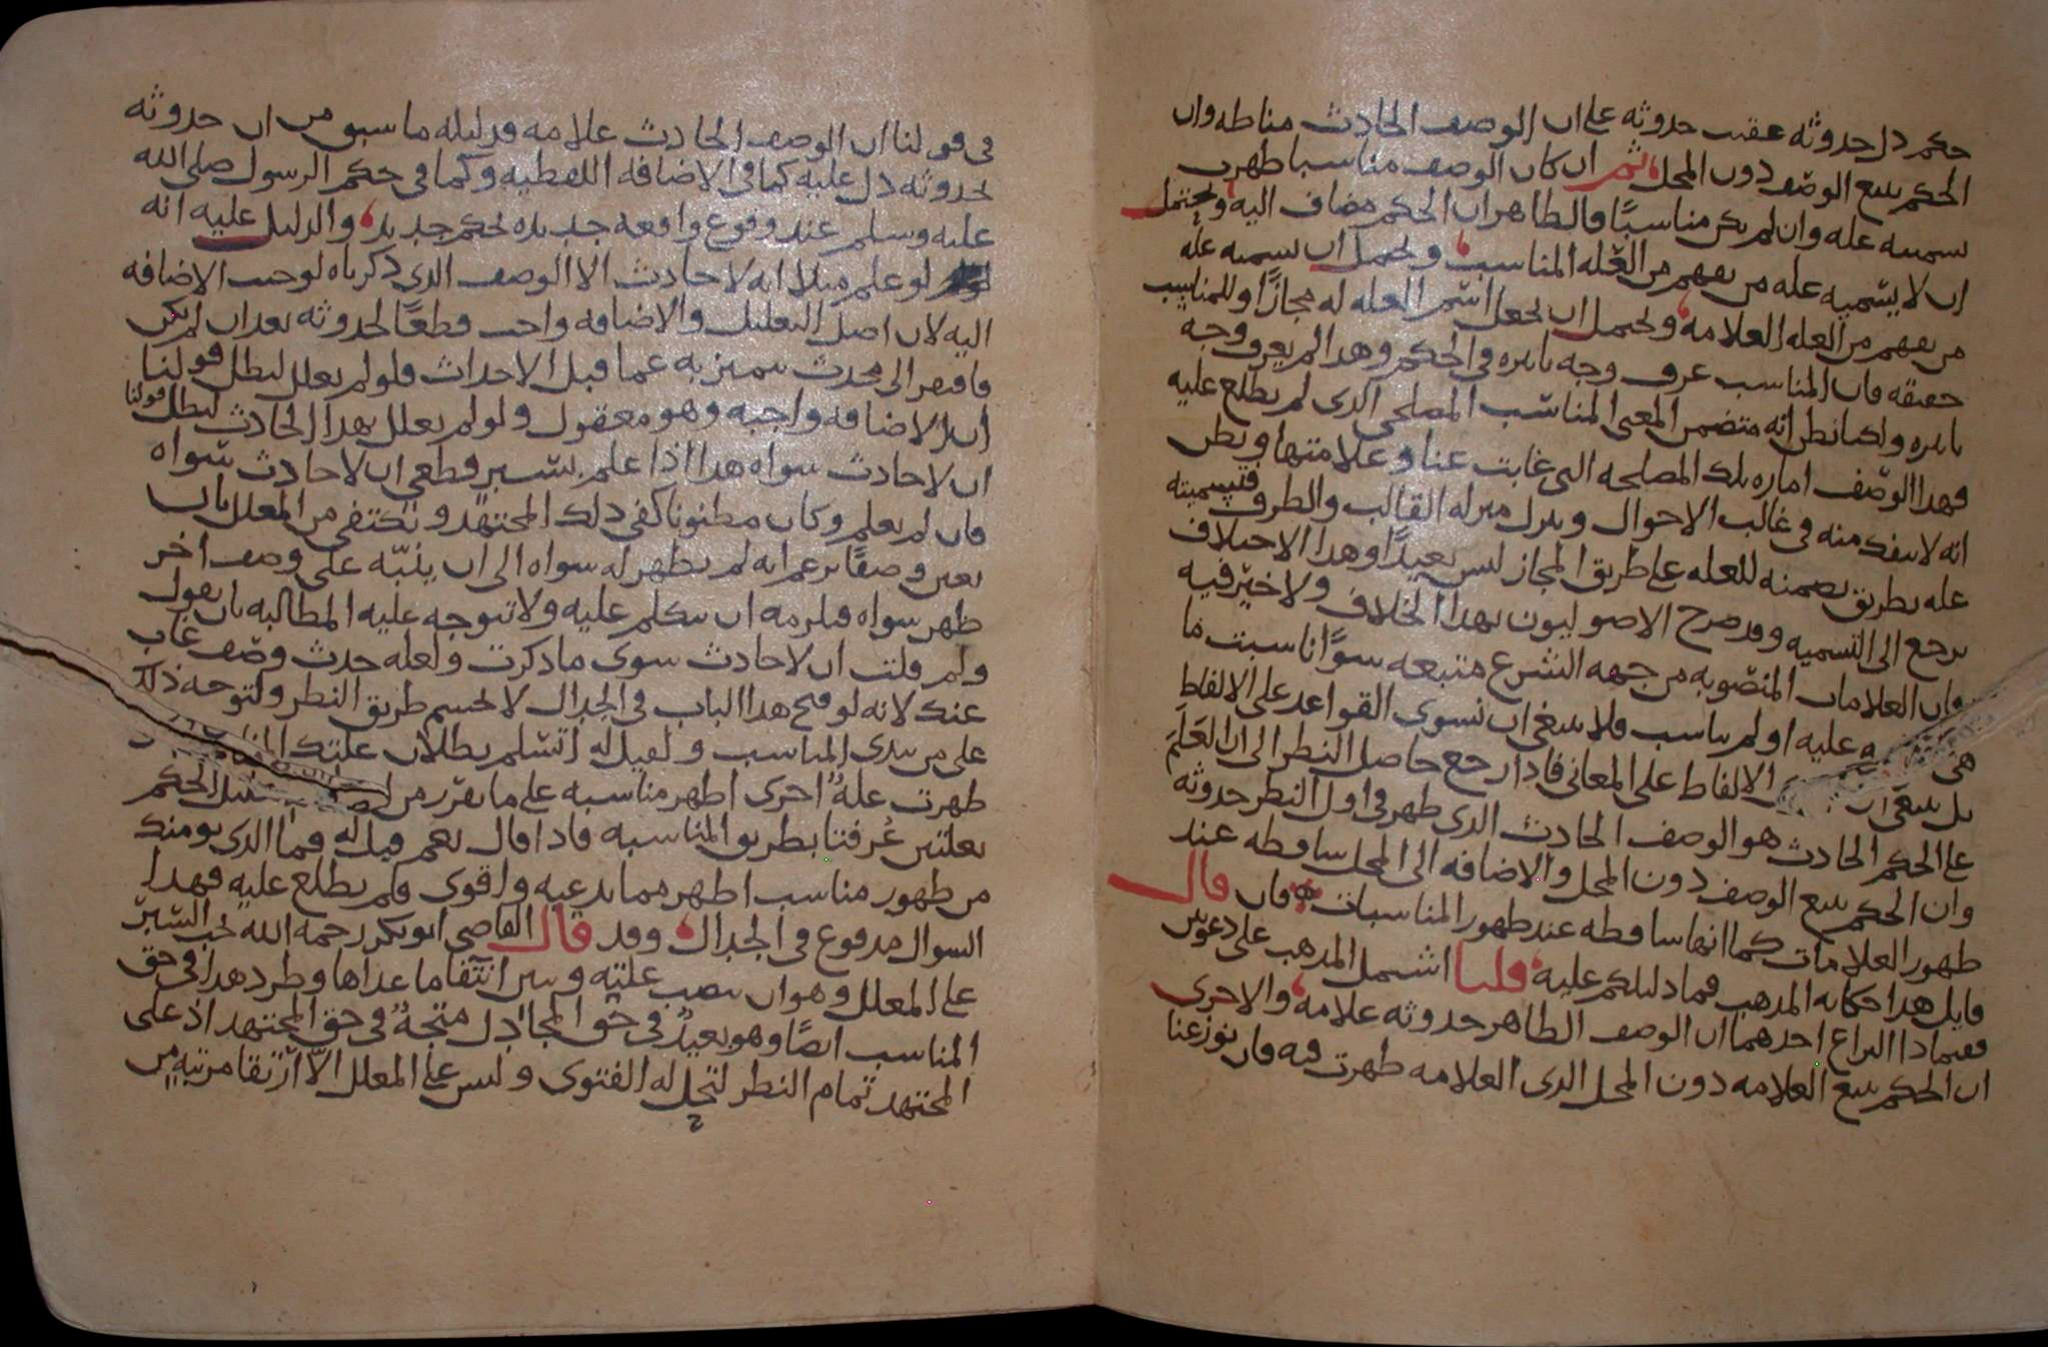 حكم دل حدوثه عقيب حدوثه على ان الوصف الحادث مناطه وان
الحكم يتبع الوصف دون المحل ثم ان كان الوصف مناسبا ظهرت
تسميته علة وان لم يكن مناسبًا فالظاهر ان الحكم مضاف اليه ويحتمل
ان لا يسميه علة من يفهم من العلة المناسب ويحتمل ان يسميه علة
من يفهم من العلة العلامة ويحتمل ان يجعل اسم العلة له مجازًا وللمناسب
حقيقة فان المناسب عرف وجه تاثيره في الحكم وهذا لم يعرف وجه
تاثيره ولكنا نظن انه متضمن المعنى المناسب المصلحي الذي لم يطلع عليه
فهذا الوصف امارة تلك المصلحة التي غابت عنا وعلامتها ويظن
انه لا ينفك منه في غالب الاحوال وينزل منزلة القالب والظرف فتسميته
علة بطريق تضمنه للعلة على طريق المجاز ليس بعيدًا وهذا الاختلاف
يرجع الى التسمية وقد صرح الاصوليون بهذا الخلاف ولا خير فيه
فان العلامات المنصوبة من جهة الشرع متبعة سوًا ناسبت ما
هي عليه او لم يناسب فلا ينبغي ان نسوي القواعد على الالفاظ
بل ينبغي ان الالفاظ على المعاني فاذا رجع حاصل النظر الى ان العَلَم
على الحكم الحادث هو الوصف الحادث الذي ظهر في اول النظر حدوثه
وان الحكم يتبع الوصف دون المحل والاضافة الى المحل ساقطة عند
ظهور العلامات كما انها ساقطة عند ظهور المناسبات فان قال
قايل هذا حكاية المذهب فما دليلكم عليه قلنا اشتمل المذهب على دعوتين
ففيماذا النزاع احدهما ان الوصف الظاهر حدوثه علامة والاخرى
ان الحكم يتبع العلامة دون المحل الذي العلامة ظهرت فيه فان نوزعنا
في قولنا ان الوصف الحادث علامة فدليله ما سبق من ان حدوثه
لحدوثه دل عليه كما في الاضافة اللفظية وكما في حكم الرسول صلى الله
عليه وسلم عند وقوع واقعة جديدة لحكم جديد والدليل عليه انه
لو علم مثلا انه لا حادث الا الوصف الذي ذكرناه لوجب الاضافة
اليه لان اصل التعليل والاضافة واجب قطعًا لحدوثه بعد ان لم يكن
فافتقر الى محدث يتميز به عما قبل الاحداث فلو لم يعلل لبطل قولنا
ان الاضافة واجبة وهو معقول ولو لم يعلل بهذا الحادث لبطل قولنا
ان لا حادث سواه هذا اذا علم بسبر قطعي ان لا حادث سواه
فان لم يعلم وكان مظنونا كفى ذلك المجتهد ويكتفى من المعلل بان
يعين وصفًا يزعم انه لم يظهر له سواه الى ان ينبّه على وصف اخر
ظهر سواه فيلزمه ان يتكلم عليه ولا تتوجه عليه المطالبة بان يقول
ولم قلت ان لا حادث سوى ما ذكرت ولعله حدث وصف غاب
عنك لانه لو فتح هذا الباب في الجدال لانحسم طريق النظر ولتوجه ذلك
على من يبدي المناسب ولقيل له اتسلم بطلان علتك
ظهرت علةٌ اخرى اظهر مناسبة على ما تقرر من الحكم
بعلتين عُرفتا بطريق المناسبة فاذا قال نعم قيل له فما الذي يومنك
من ظهور مناسب اظهر مما تدعيه واقوى ولم يطلع عليه فهذا
السوال مدفوع في الجدال وقد قال القاضي ابو بكر رحمه الله يجب السّبرُ
على المعلل وهو ان ينصب علته ويبين انتفاء ما عداها وطرد هذا في حق
المناسب ايضًا وهو بعيدٌ في حق المجادل متجهٌ في حق المجتهد اذ على
المجتهد تمام النظر لتحل له الفتوى وليس على المعلل الاّ ارتقا مرتبة من